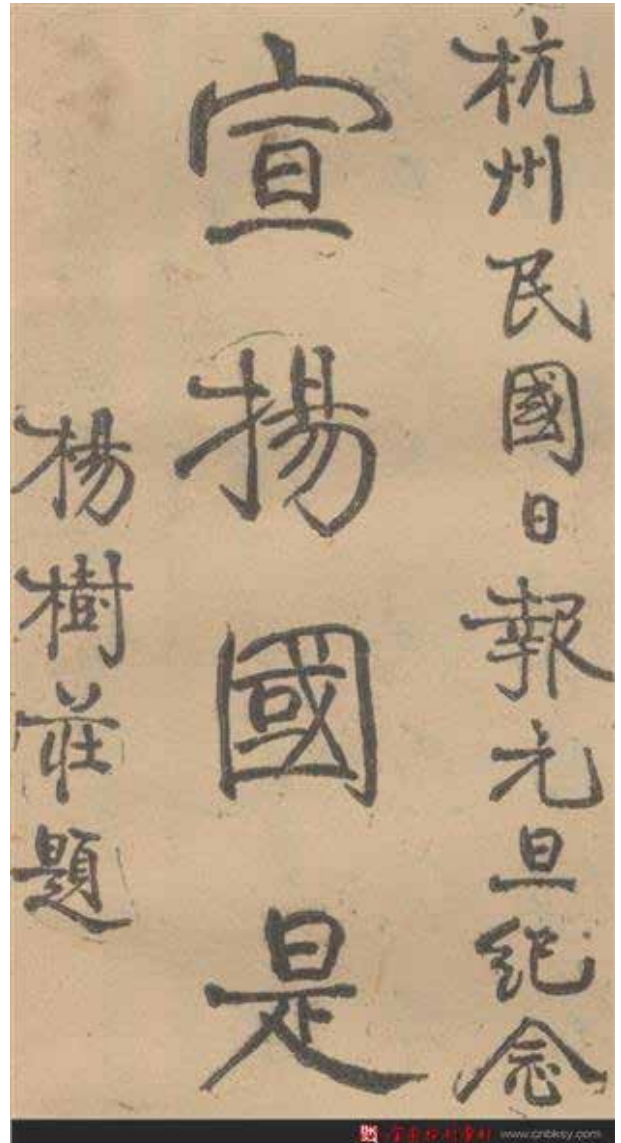 杭州民國日報元旦紀念
宣揚國是
楊樹莊題
全國报刊索引 www.cnbksy.com